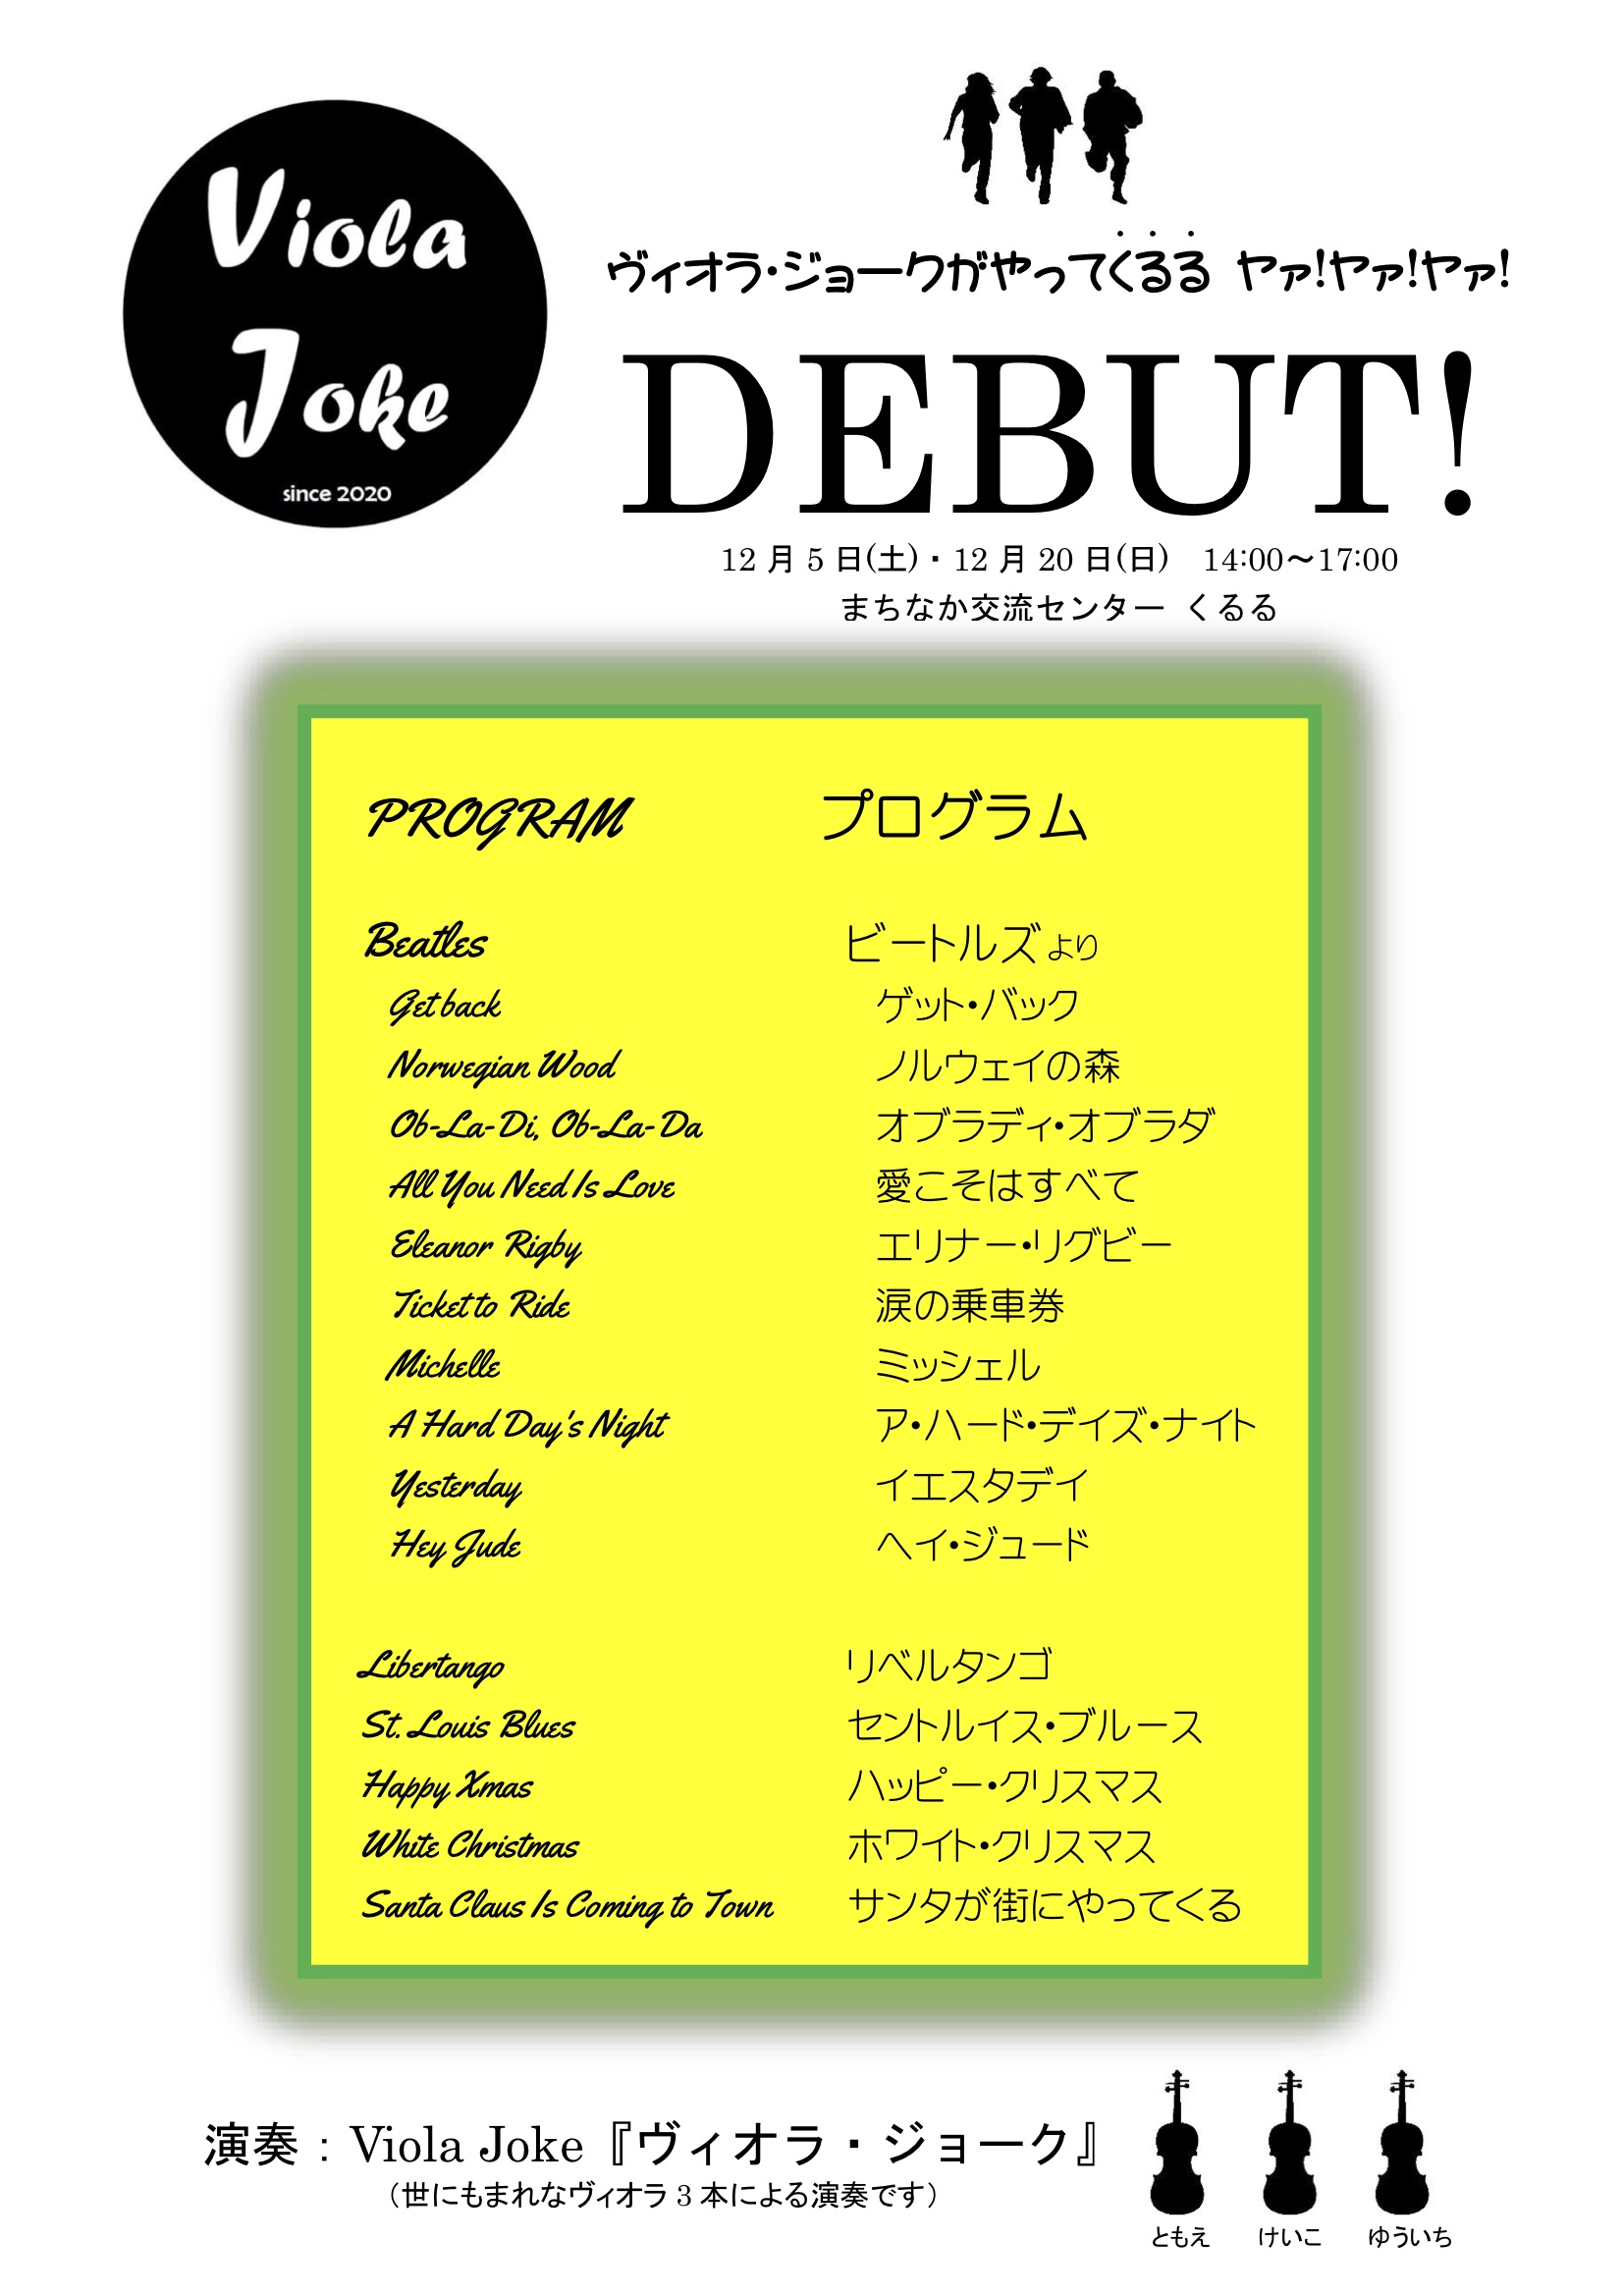 Viola
Joke
since 2020
ヴィオラ・ジョークがやってくるる ヤァ!ヤァ!ヤァ!
DEBUT!
12 月 5 日(土)・12 月 20 日(日) 14:00～17:00
まちなか交流センター くるる
PROGRAM プログラム
Beatles ビートルズより
Get back ゲット・バック
Norwegian Wood ノルウェイの森
Ob-La-Di, Ob-La-Da オブラディ・オブラダ
All You Need Is Love 愛こそはすべて
Eleanor Rigby エリナー・リグビー
Ticket to Ride 涙の乗車券
Michelle ミッシェル
A Hard Day's Night ア・ハード・デイズ・ナイト
Yesterday イエスタデイ
Hey Jude ヘイ・ジュード
Libertango リベルタンゴ
St. Louis Blues セントルイス・ブルース
Happy Xmas ハッピー・クリスマス
White Christmas ホワイト・クリスマス
Santa Claus Is Coming to Town サンタが街にやってくる
演奏：Viola Joke『ヴィオラ・ジョーク』
（世にもまれなヴィオラ 3 本による演奏です）
ともえ けいこ ゆういち